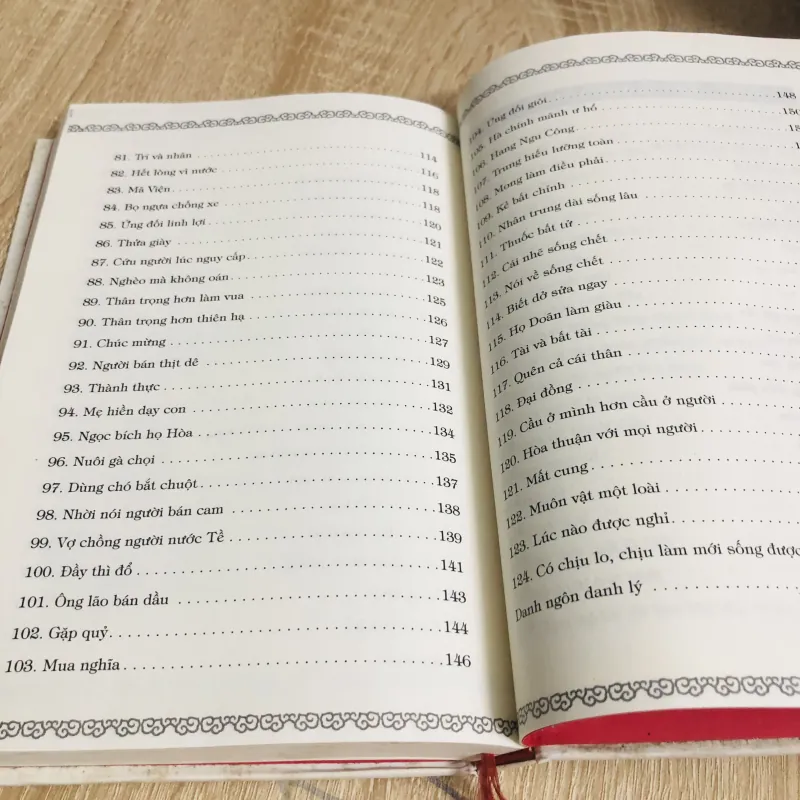 81. Trí và nhân . . . . . . . . . . . . . . . . . . . . 114
82. Hết lòng vì nước . . . . . . . . . . . . . . . . . . . . 116
83. Mã Viện . . . . . . . . . . . . . . . . . . . . 118
84. Bọ ngựa chống xe . . . . . . . . . . . . . . . . . . . . 118
85. Ứng đối linh lợi . . . . . . . . . . . . . . . . . . . . 120
86. Thửa giày . . . . . . . . . . . . . . . . . . . . 121
87. Cứu người lúc nguy cấp . . . . . . . . . . . . . . . . . . . . 122
88. Nghèo mà không oán . . . . . . . . . . . . . . . . . . . . 123
89. Thân trọng hơn làm vua . . . . . . . . . . . . . . . . . . . . 125
90. Thân trọng hơn thiên hạ . . . . . . . . . . . . . . . . . . . . 126
91. Chúc mừng . . . . . . . . . . . . . . . . . . . . 127
92. Người bán thịt dê . . . . . . . . . . . . . . . . . . . . 129
93. Thành thực . . . . . . . . . . . . . . . . . . . . 131
94. Mẹ hiền dạy con . . . . . . . . . . . . . . . . . . . . 132
95. Ngọc bích họ Hòa . . . . . . . . . . . . . . . . . . . . 134
96. Nuôi gà chọi . . . . . . . . . . . . . . . . . . . . 135
97. Dùng chó bắt chuột . . . . . . . . . . . . . . . . . . . . 137
98. Nhời nói người bán cam . . . . . . . . . . . . . . . . . . . . 138
99. Vợ chồng người nước Tề . . . . . . . . . . . . . . . . . . . . 139
100. Đầy thì đổ . . . . . . . . . . . . . . . . . . . . 141
101. Ông lão bán dầu . . . . . . . . . . . . . . . . . . . . 143
102. Gặp quỷ . . . . . . . . . . . . . . . . . . . . 144
103. Mua nghĩa . . . . . . . . . . . . . . . . . . . . 146
104. Ứng đối giỏi . . . . . . . . . . . . . . . . . . . . 148
105. Hà chính mãnh ư hổ . . . . . . . . . . . . . . . . . . . .
106. Hang Ngu Công . . . . . . . . . . . . . . . . . . . .
107. Trung hiếu lưỡng toàn . . . . . . . . . . . . . . . . . . . .
108. Mong làm điều phải . . . . . . . . . . . . . . . . . . . .
109. Kẻ bất chính . . . . . . . . . . . . . . . . . . . .
110. Nhân trung dài sống lâu . . . . . . . . . . . . . . . . . . . .
111. Thuốc bất tử . . . . . . . . . . . . . . . . . . . .
112. Cái nhẽ sống chết . . . . . . . . . . . . . . . . . . . .
113. Nói về sống chết . . . . . . . . . . . . . . . . . . . .
114. Biết dở sửa ngay . . . . . . . . . . . . . . . . . . . .
115. Họ Doãn làm giàu . . . . . . . . . . . . . . . . . . . .
116. Tài và bất tài . . . . . . . . . . . . . . . . . . . .
117. Quên cả cái thân . . . . . . . . . . . . . . . . . . . .
118. Đại đồng . . . . . . . . . . . . . . . . . . . .
119. Cầu ở mình hơn cầu ở người . . . . . . . . . . . . . . . . . . . .
120. Hòa thuận với mọi người . . . . . . . . . . . . . . . . . . . .
121. Mất cung . . . . . . . . . . . . . . . . . . . .
122. Muôn vật một loài . . . . . . . . . . . . . . . . . . . .
123. Lúc nào được nghỉ . . . . . . . . . . . . . . . . . . . .
124. Có chịu lo, chịu làm mới sống được
Danh ngôn danh lý . . . . . . . . . . . . . . . . . . . .